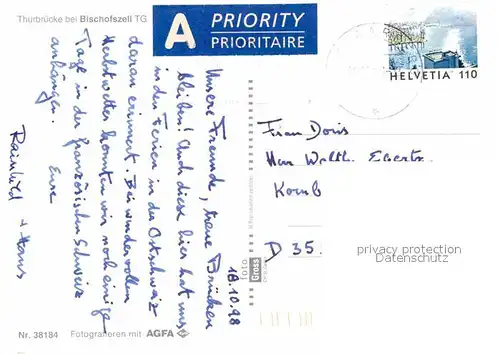 Thurbrücke bei Bischofszell TG
A PRIORITY
PRIORITAIRE
HELVETIA 110
18.10.98
Unsere Freunde, treue Brücken
bleiben! Auch diese hier hat uns
in den Ferien in der Ostschweiz
daran erinnert. Bei wundervollem
Herbstwetter konnten wir noch einige
Tage in der französischen Schweiz
anhängen. Eure
Rainhild + Hans
Frau Doris
Herr Walth. Eberts
D 35
privacy protection
DATENSCHUTZ
foto
Gross
Nr. 38184 Fotografieren mit AGFA